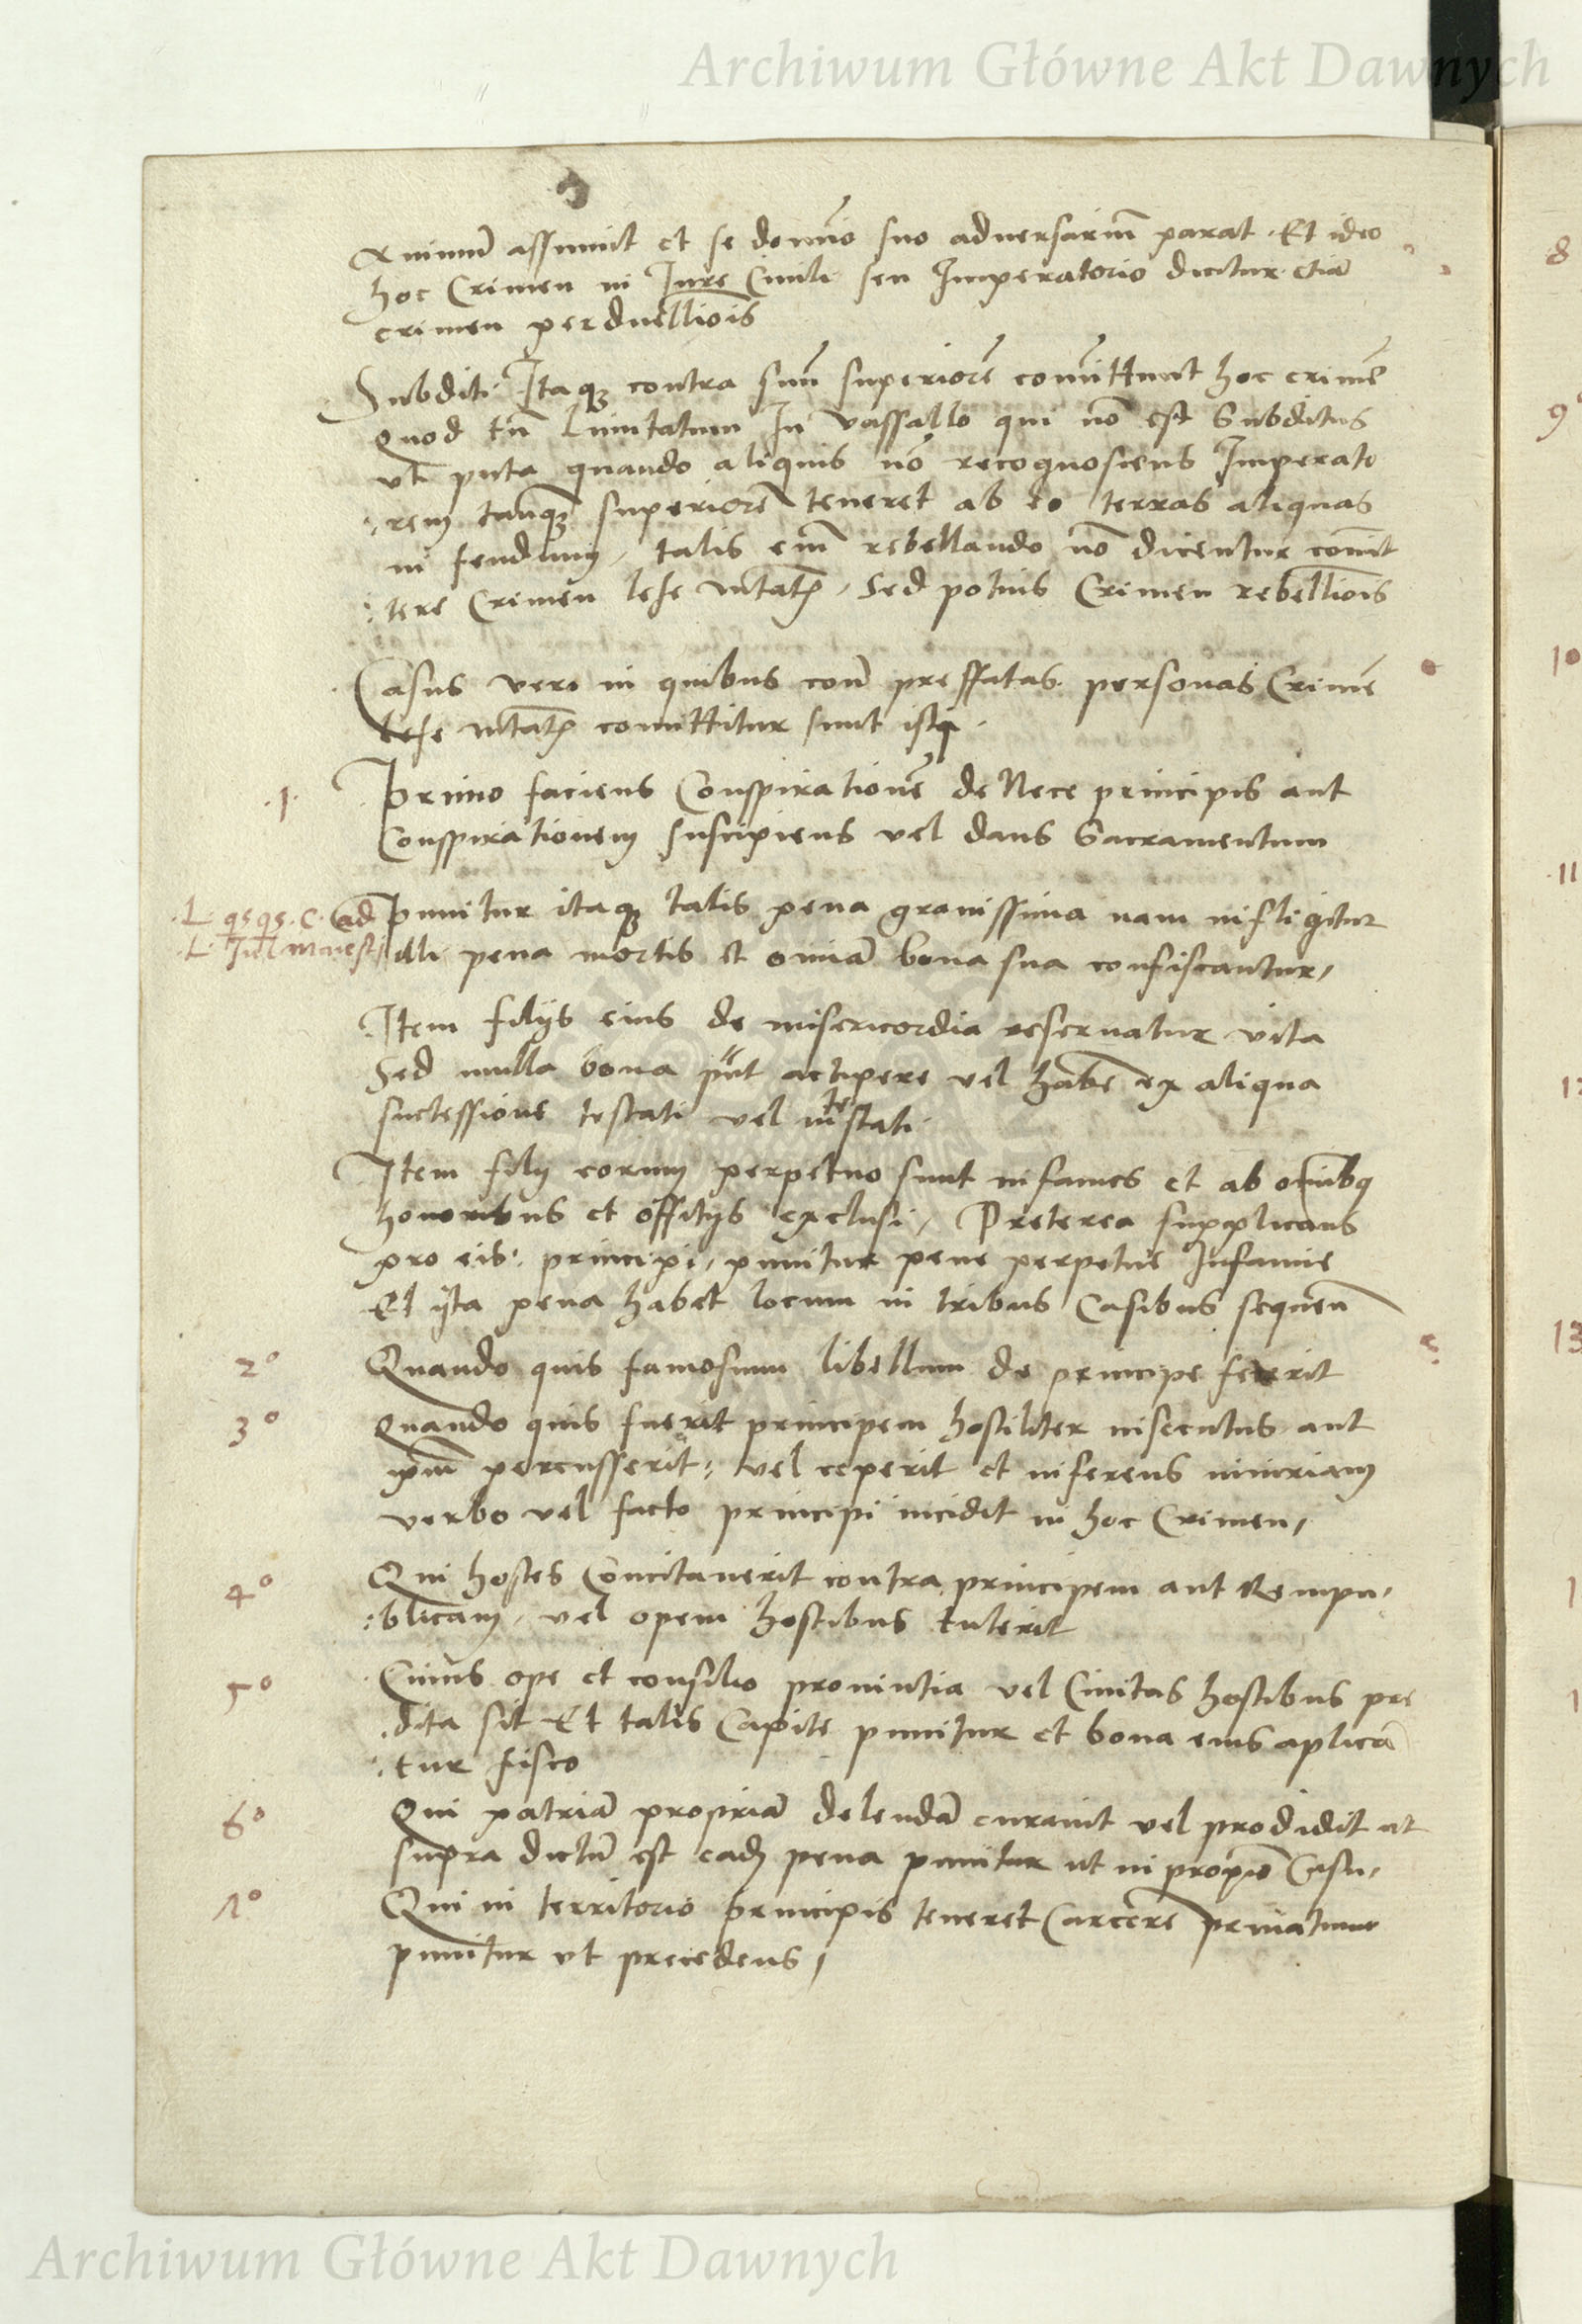 Archiwum Główne Akt Dawnych
animũ assumit et se domĩo suo aduersariũ parat. Et ideo
hoc Crimen in Iure Ciuili seu Imperatorio dicitur etiã
crimen perduellioĩs
Subditi Itaqꝫ contra suũ superiorẽ comittunt hoc crimẽ
Quod tñ Limitatum In vassallo qui nõ est Subditus
vt puta quando aliquis nõ recognosiens Imperato
rem tanqꝫ superiorẽ teneret ab eo terras aliquas
in feudum, talis em̃ rebellando nõ dicentur comit
tere Crimen lese Mtatꝭ, Sed potius Crimen rebellioĩs
Casus vero in quibus coñ preffatas personas Crimẽ
lese Mtatꝭ comittitur sunt isti
.1. Primo faciens Conspirationẽ de Nece principis aut
Conspirationem suscipiens vel dans Sacramentum
.L. qs qs. C. ad punitur itaqꝫ talis pena grauissima nam infligitur
.L. Iul Maiest. illi pena mortis et omia bona sua confiscantur,
Item filijs eius de misericordia reseruatur vita
Sed nulla bona pñt accipere vel habẽ ex aliqua
successione testati vel intestati
Item filij eorum perpetuo sunt infames et ab omibꝫ
honoribus et offitijs exclusi, Preterea supplicans
pro eis principi, punitur pene perpetue Infamie
Et ista pena habet locum in tribus Casibus sequeñ
2º Quando quis famosum libellum de principe fecerit
3º Quando quis fuerit principem hostiliter insecutus aut
ipm̃ percusserit, vel ceperit et inferens iniuriam
verbo vel facto principi incidit in hoc Crimen,
4º Qui hostes Concitauerit contra principem aut Rempu,
blicam, vel opem hostibus tulerit
5º Cuius ope et consilio prouintia vel Ciuitas hostibus pre
dita sit Et talis Capite punitur et bona eius aplicã
tur fisco
6º Qui patriã propriã delendã curauit vel prodidit ut
supra dictũ est eadẽ pena punitur ut in proxiõ Casu,
7º Qui in territorio principis teneret Carcerẽ priuatum
punitur vt precedens,
8
9º
10
.11
13
Archiwum Główne Akt Dawnych